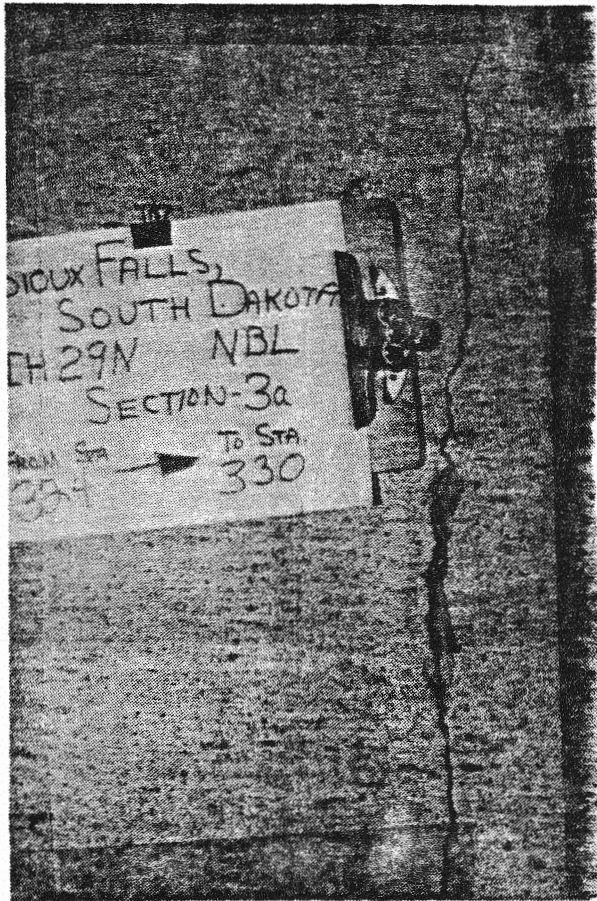 SIOUX FALLS,
SOUTH DAKOTA
IH 29N NBL
SECTION-3a
FROM STA TO STA.
324 330